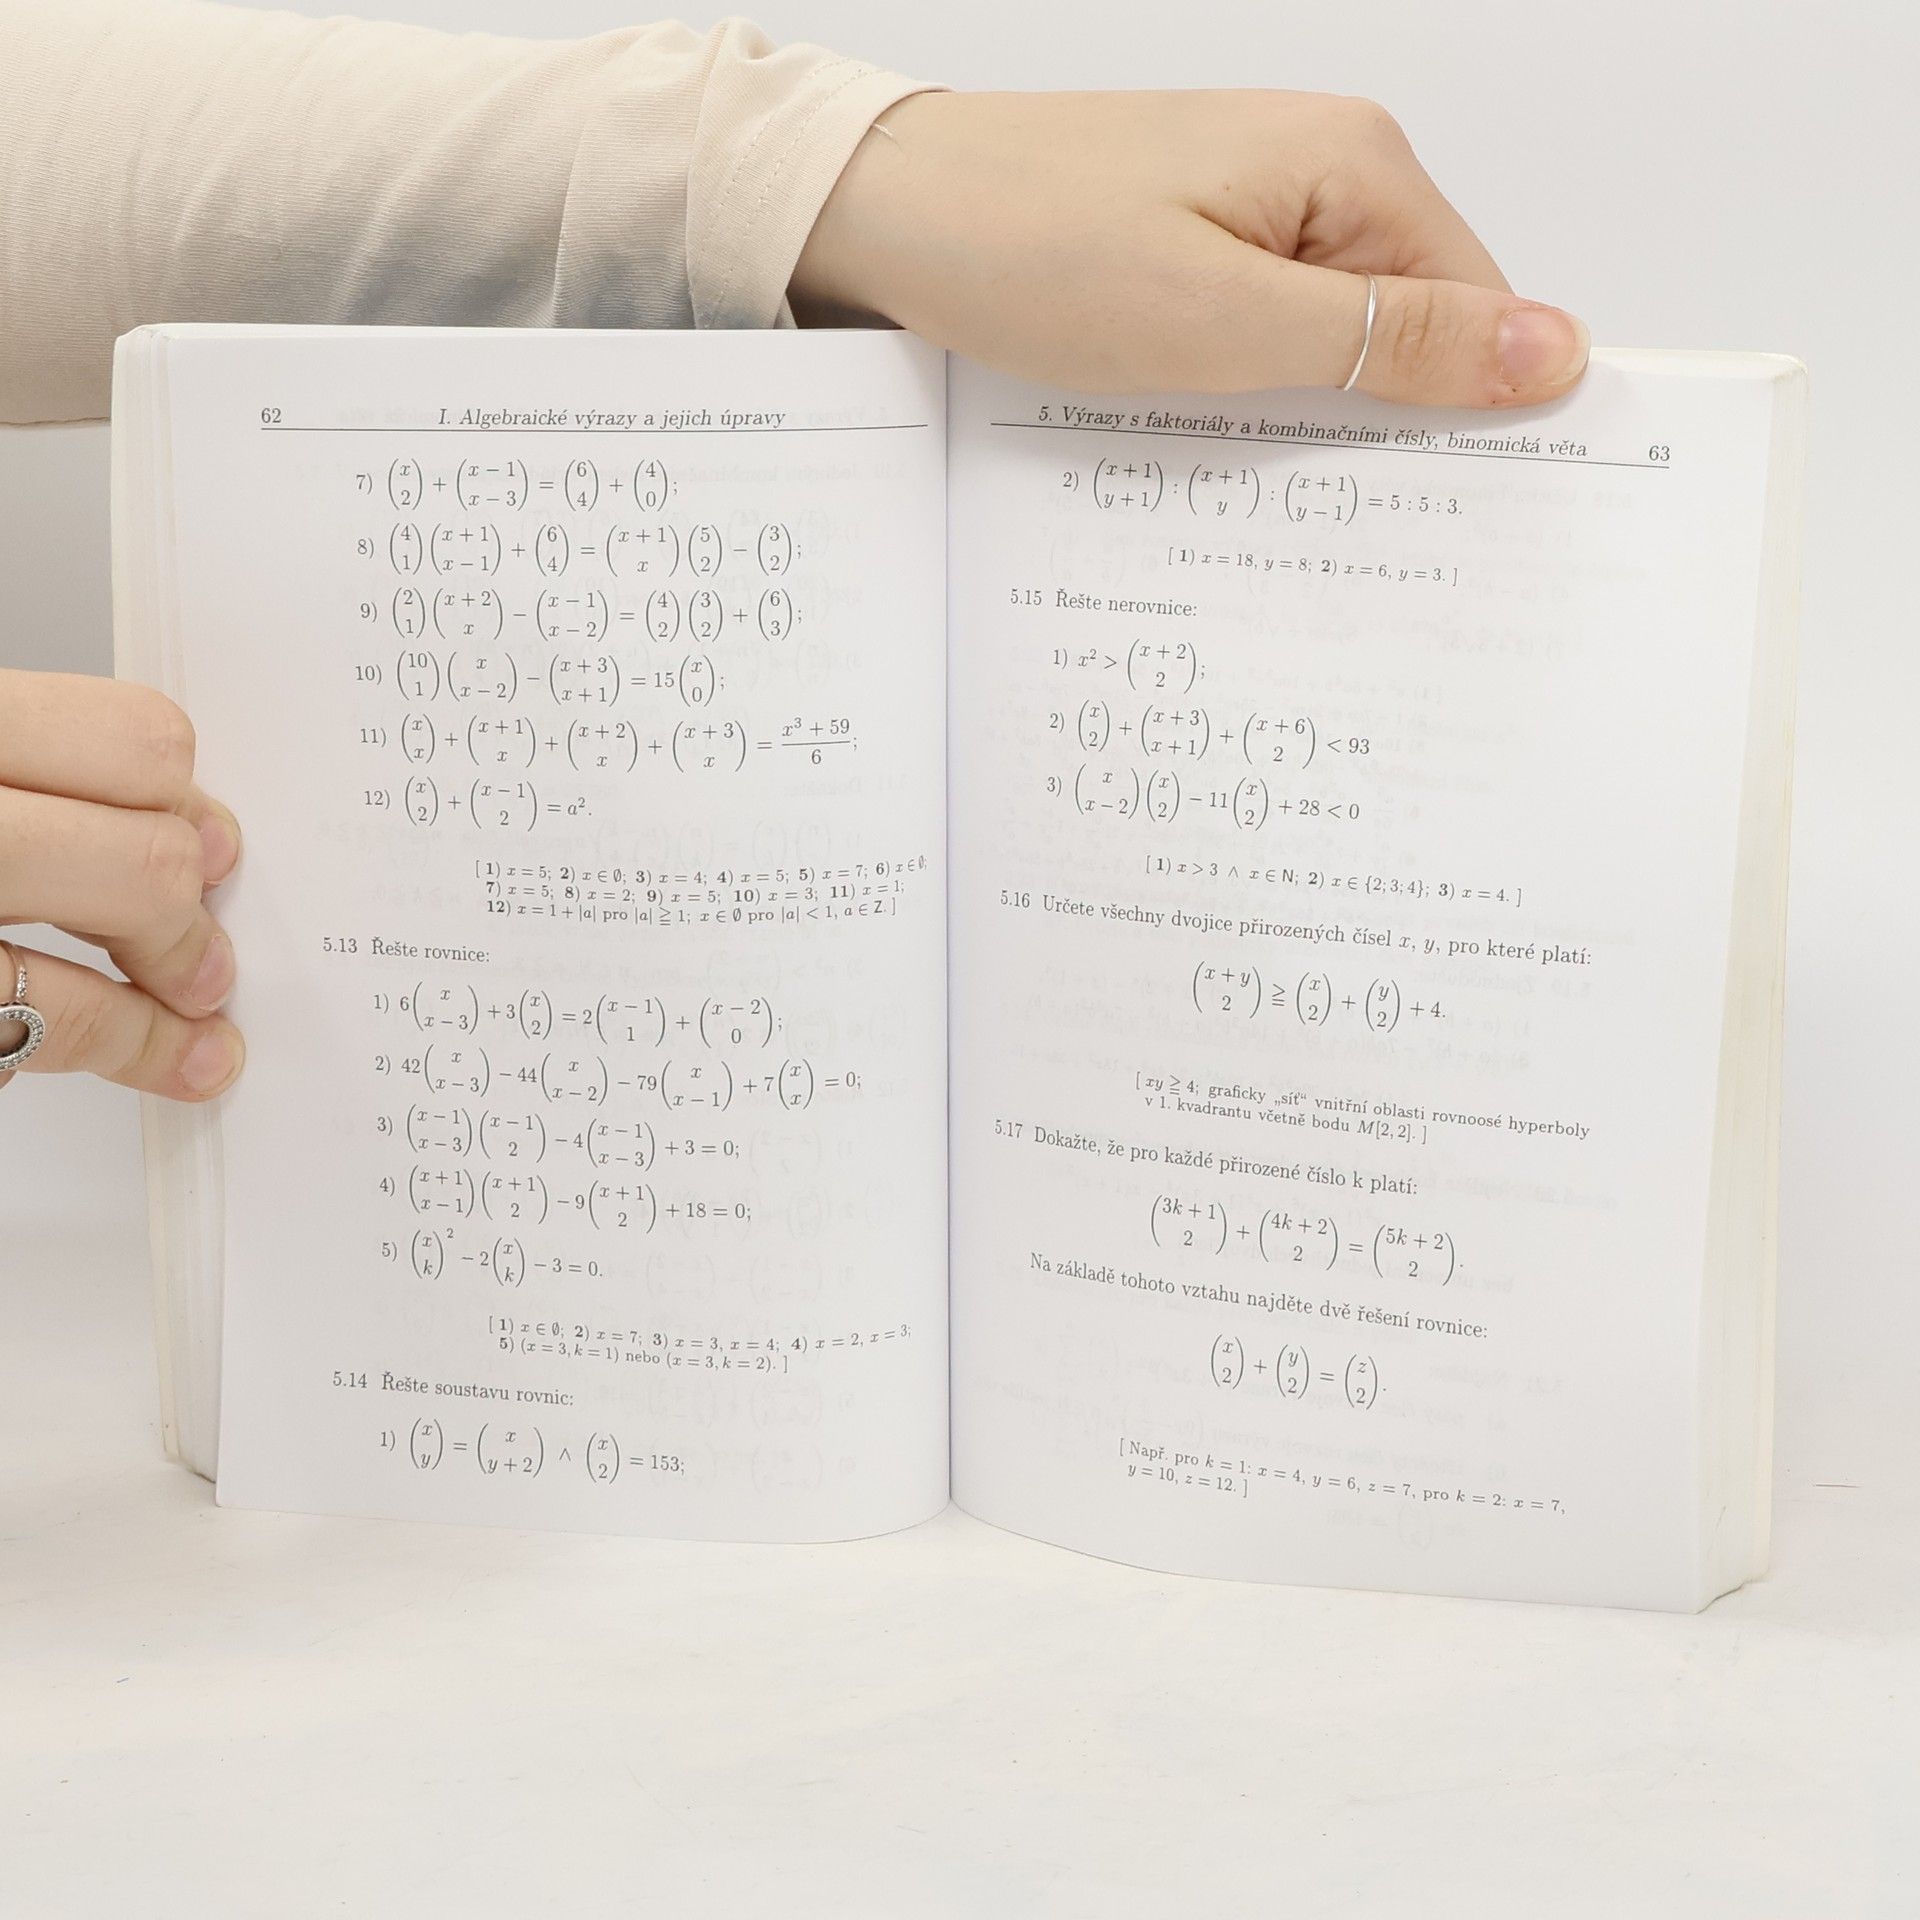 62 I. Algebraické výrazy a jejich úpravy
7) \binom{x}{2} + \binom{x-1}{x-3} = \binom{6}{4} + \binom{4}{0};
8) \binom{4}{1}\binom{x+1}{x-1} + \binom{6}{4} = \binom{x+1}{x}\binom{5}{2} - \binom{3}{2};
9) \binom{2}{1}\binom{x+2}{x} - \binom{x-1}{x-2} = \binom{4}{2}\binom{3}{2} + \binom{6}{3};
10) \binom{10}{1}\binom{x}{x-2} - \binom{x+3}{x+1} = 15\binom{x}{0};
11) \binom{x}{x} + \binom{x+1}{x} + \binom{x+2}{x} + \binom{x+3}{x} = \frac{x^3+59}{6};
12) \binom{x}{2} + \binom{x-1}{2} = a^2.
[ 1) x = 5; 2) x ∈ ∅; 3) x = 4; 4) x = 5; 5) x = 7; 6) x ∈ ∅;
7) x = 5; 8) x = 2; 9) x = 5; 10) x = 3; 11) x = 1;
12) x = 1 + |a| pro |a| ≧ 1; x ∈ ∅ pro |a| < 1, a ∈ Z. ]
5.13 Řešte rovnice:
1) 6\binom{x}{x-3} + 3\binom{x}{2} = 2\binom{x-1}{1} + \binom{x-2}{0};
2) 42\binom{x}{x-3} - 44\binom{x}{x-2} - 79\binom{x}{x-1} + 7\binom{x}{x} = 0;
3) \binom{x-1}{x-3}\binom{x-1}{2} - 4\binom{x-1}{x-3} + 3 = 0;
4) \binom{x+1}{x-1}\binom{x+1}{2} - 9\binom{x+1}{2} + 18 = 0;
5) \binom{x}{k}^2 - 2\binom{x}{k} - 3 = 0.
[ 1) x ∈ ∅; 2) x = 7; 3) x = 3, x = 4; 4) x = 2, x = 3;
5) (x = 3, k = 1) nebo (x = 3, k = 2). ]
5.14 Řešte soustavu rovnic:
1) \binom{x}{y} = \binom{x}{y+2} ∧ \binom{x}{2} = 153;
5. Výrazy s faktoriály a kombinačními čísly, binomická věta 63
2) \binom{x+1}{y+1} : \binom{x+1}{y} : \binom{x+1}{y-1} = 5 : 5 : 3.
[ 1) x = 18, y = 8; 2) x = 6, y = 3. ]
5.15 Řešte nerovnice:
1) x^2 > \binom{x+2}{2};
2) \binom{x}{2} + \binom{x+3}{x+1} + \binom{x+6}{2} < 93
3) \binom{x}{x-2}\binom{x}{2} - 11\binom{x}{2} + 28 < 0
[ 1) x > 3 ∧ x ∈ N; 2) x ∈ {2; 3; 4}; 3) x = 4. ]
5.16 Určete všechny dvojice přirozených čísel x, y, pro které platí:
\binom{x+y}{2} ≧ \binom{x}{2} + \binom{y}{2} + 4.
[ xy ≧ 4; graficky „síť“ vnitřní oblasti rovnoosé hyperboly
v 1. kvadrantu včetně bodu M[2, 2]. ]
5.17 Dokažte, že pro každé přirozené číslo k platí:
\binom{3k+1}{2} + \binom{4k+2}{2} = \binom{5k+2}{2}.
Na základě tohoto vztahu najděte dvě řešení rovnice:
\binom{x}{2} + \binom{y}{2} = \binom{z}{2}.
[ Např. pro k = 1: x = 4, y = 6, z = 7, pro k = 2: x = 7,
y = 10, z = 12. ]